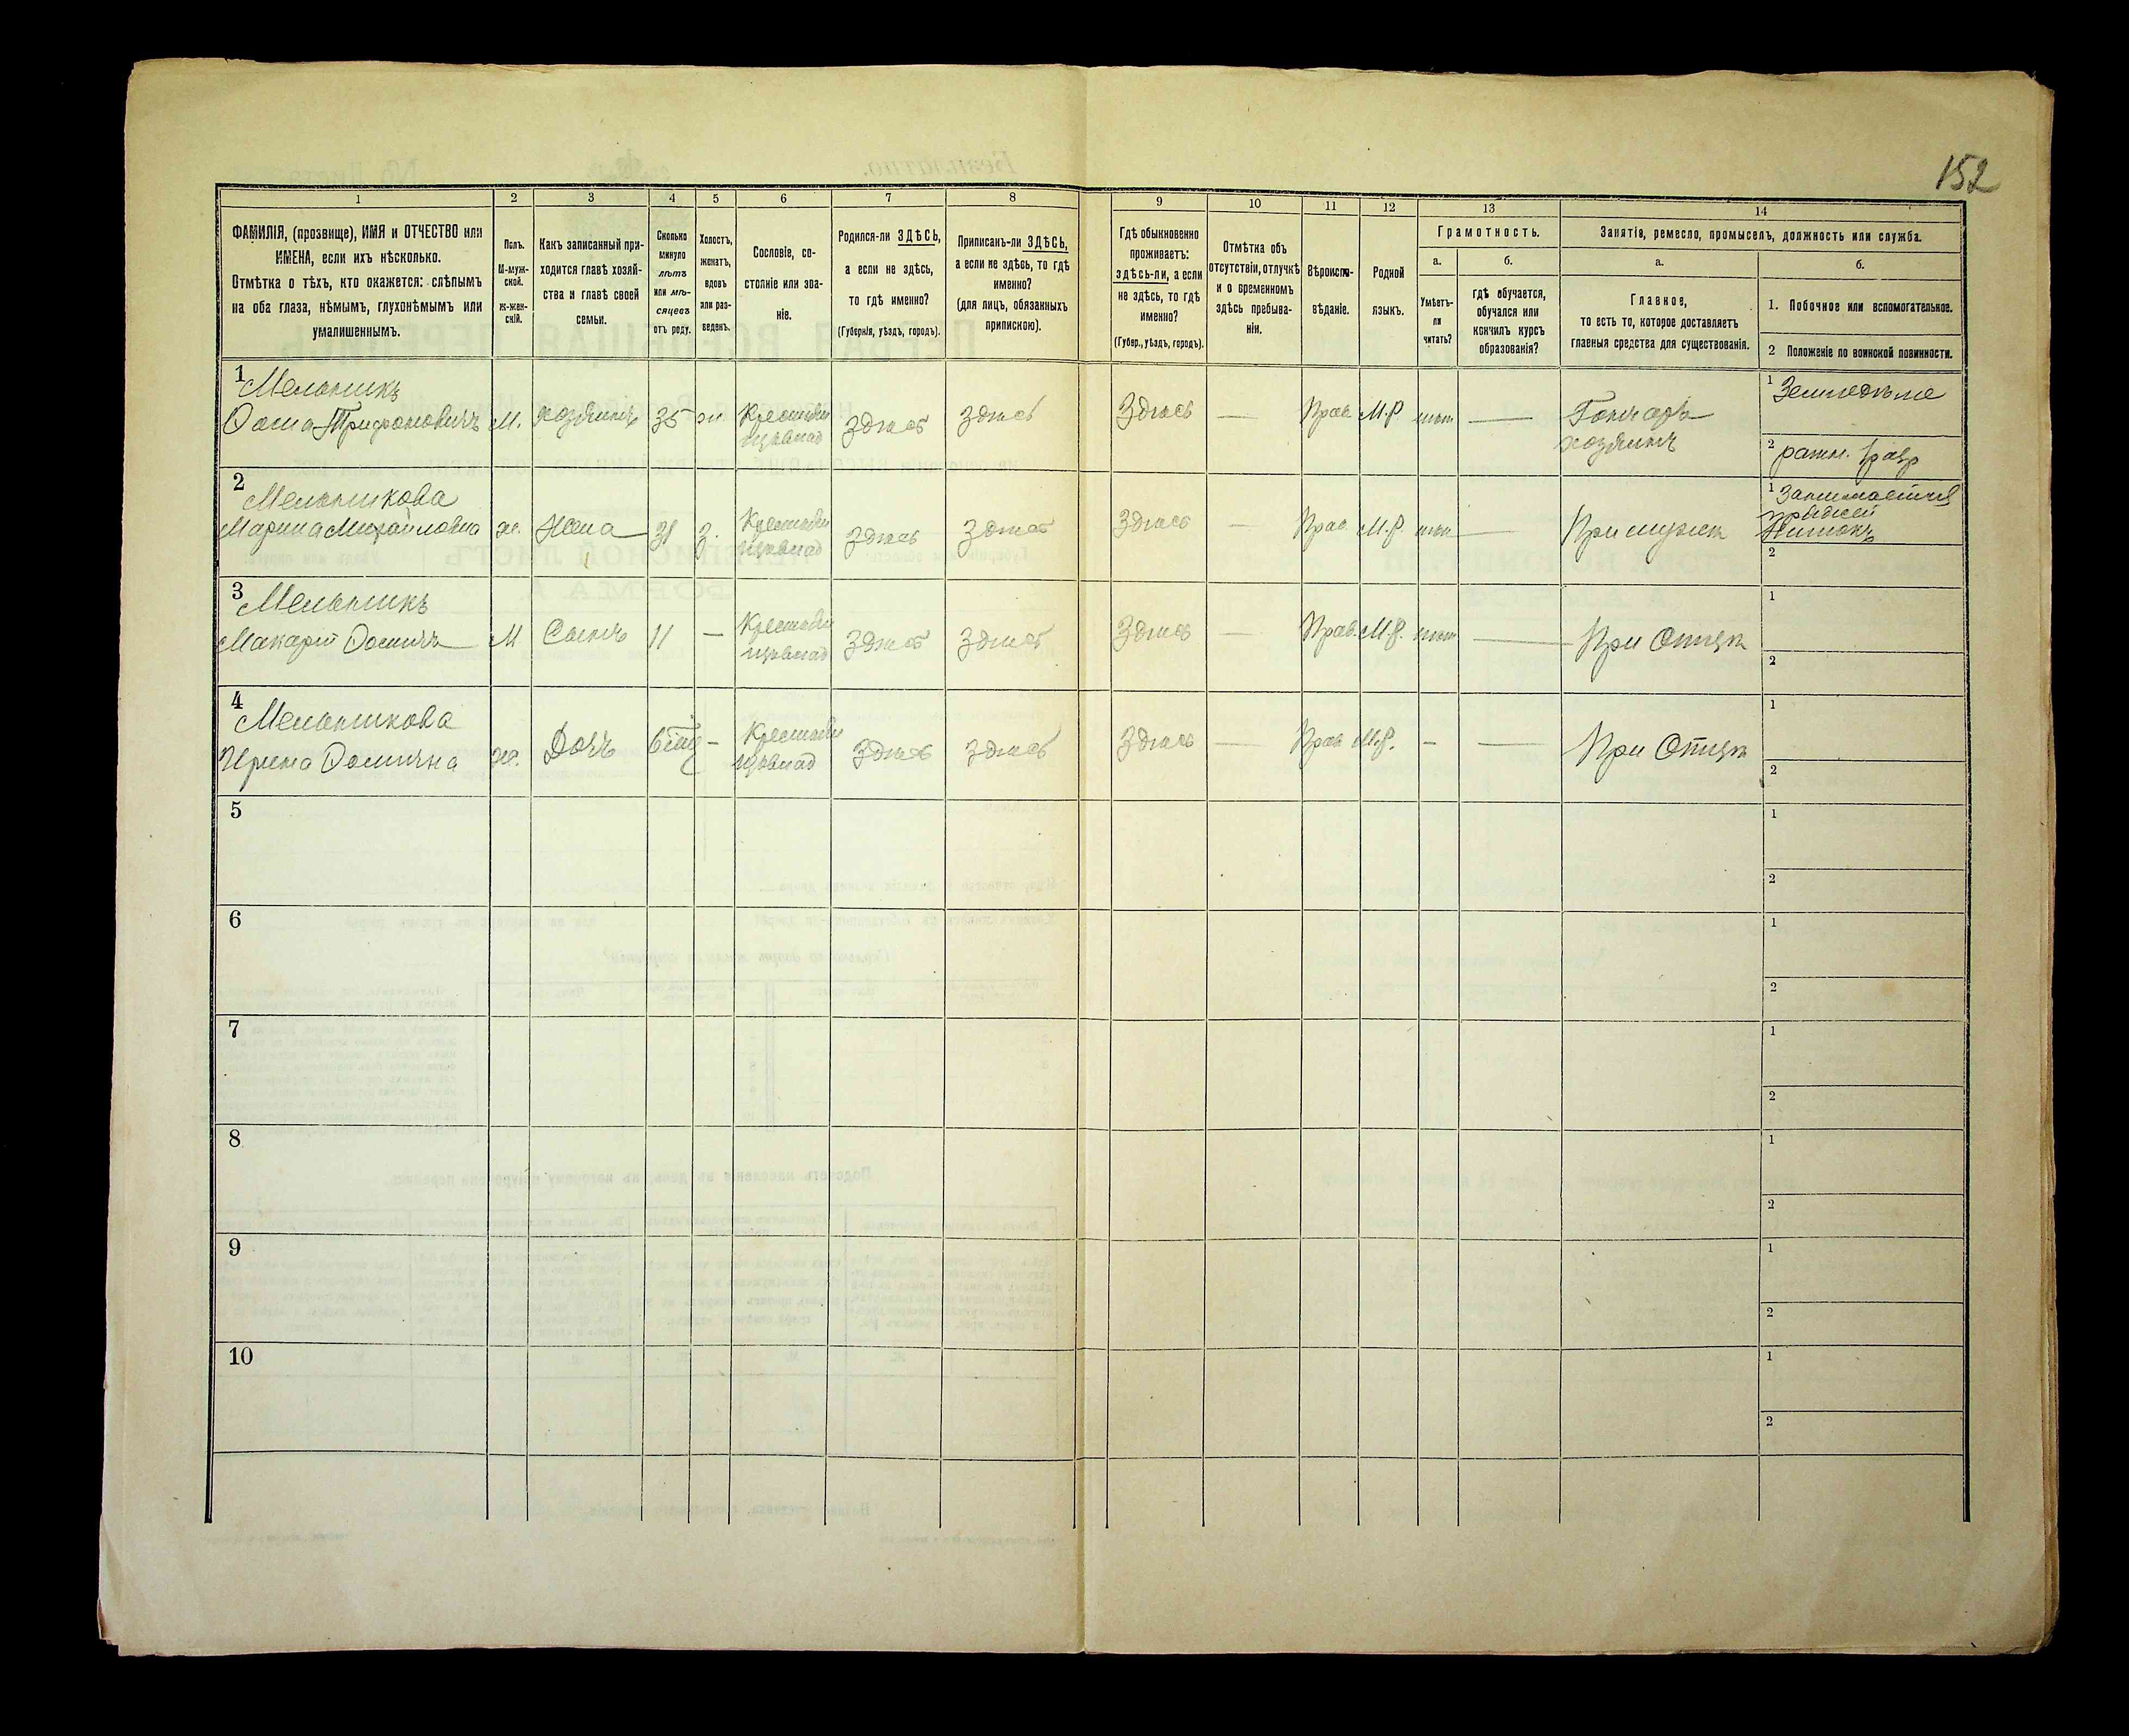 152
1 2 3 4 5 6 7 8 9 10 11 12 13 14
ФАМИЛІЯ, (прозвище), ИМЯ и ОТЧЕСТВО или
ИМЕНА, если ихъ нѣсколько.
Отмѣтка о тѣхъ, кто окажется: слѣпымъ
на оба глаза, нѣмымъ, глухонѣмымъ или
умалишеннымъ.
Полъ.
М-муж-
ской.
Ж-жен-
скій.
Какъ записанный при-
ходится главѣ хозяй-
ства и главѣ своей
семьи.
Сколько
минуло
лѣтъ
или мѣ-
сяцевъ
отъ роду.
Холостъ,
женатъ,
вдовъ
или раз-
веденъ.
Сословіе, со-
стояніе или зва-
ніе.
Родился-ли ЗДѢСЬ,
а если не здѣсь,
то гдѣ именно?
(Губернія, уѣздъ, городъ).
Приписанъ-ли ЗДѢСЬ,
а если не здѣсь, то гдѣ
именно?
(для лицъ, обязанныхъ
припискою).
Гдѣ обыкновенно
проживаетъ:
здѣсь-ли, а если
не здѣсь, то гдѣ
именно?
(Губер., уѣздъ, городъ).
Отмѣтка объ
отсутствіи, отлучкѣ
и о временномъ
здѣсь пребыва-
ніи.
Вѣроиспо-
вѣданіе.
Родной
языкъ.
Грамотность.
а.
Умѣетъ-
ли
читать?
б.
гдѣ обучается,
обучался или
кончилъ курсъ
образованія?
Занятіе, ремесло, промыселъ, должность или служба.
а.
Главное,
то есть то, которое доставляетъ
главныя средства для существованія.
б.
1. Побочное или вспомогательное.
2 Положеніе по воинской повинности.
1 Мельникъ
Фома Трифоновичъ М. хозяинъ 35 ж. здѣсь здѣсь здѣсь — Прав. М.Р нѣтъ — Гончаръ
хозяинъ
1 Земледѣліе
2 ратн.
2 Мельникова
Марина Михайловна ж. Жена 31 з. здѣсь здѣсь здѣсь — Прав. М.Р. нѣтъ — При мужѣ
1 Занимается
пряжей
Нитокъ
2
3 Мельникъ
Макарій Фомичъ М Сынъ 11 — здѣсь здѣсь здѣсь — Прав. М.Р. нѣтъ — При Отцѣ
1
2
4 Мельникова
Ирина Фомична ж. Дочь — здѣсь здѣсь здѣсь — Прав. М.Р. — — При Отцѣ
1
2
5
1
2
6
1
2
7
1
2
8
1
2
9
1
2
10
1
2